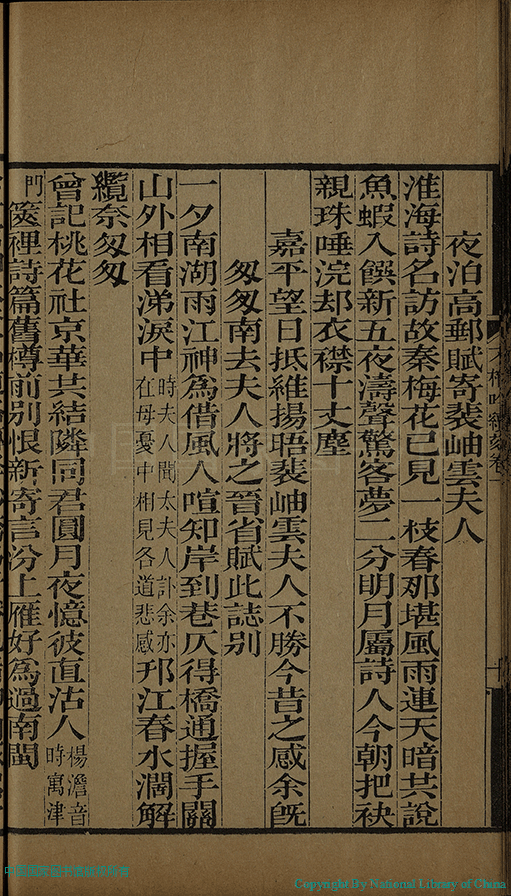 夜泊高郵賦寄裴岫雲夫人
淮海詩名訪故秦梅花已見一枝春那堪風雨連天暗共說
魚蝦入饌新五夜濤聲驚客夢二分明月屬詩人今朝把袂
親珠唾浣却衣襟十丈塵
嘉平望日抵維揚晤裴岫雲夫人不勝今昔之感余旣
匆匆南去夫人將之晉省賦此誌別
一夕南湖雨江神為借風人喧知岸到巷仄得橋通握手關
山外相看涕淚中時夫人聞太夫人訃余亦
在母憂中相見各道悲感邗江春水濶解
纜奈匆匆
曾記桃花社京華共結隣同君圓月夜憶彼直沽人楊澹音
時寓津
門篋裡詩篇舊樽前別恨新寄言汾上雁好為過南閩
Copyright By National Library of China